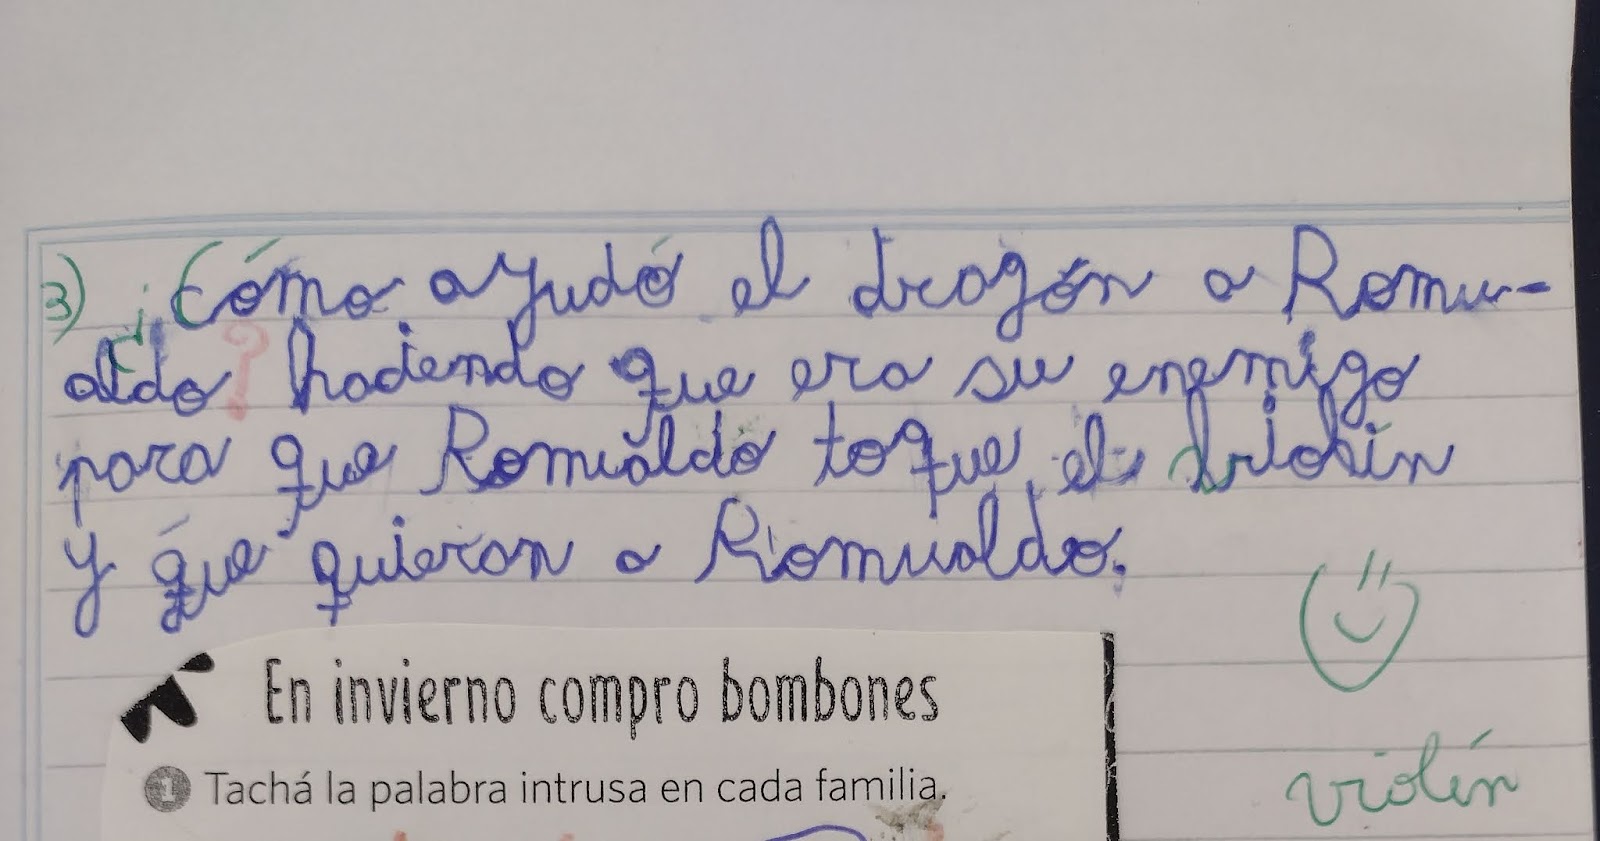 3) ¿Cómo ayudó el dragón a Romu-
aldo? haciendo que era su enemigo
para que Romualdo toque el violín
y que quieran a Romualdo.
En invierno compro bombones
1 Tachá la palabra intrusa en cada familia.
violín